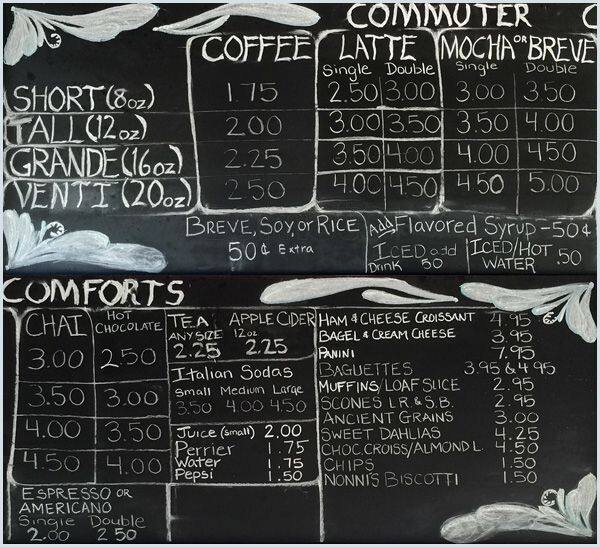 COMMUTER C
COFFEE LATTE MOCHA OR BREVE
Single Double Single Double
SHORT (8oz) 1.75 2.50 3.00 3.00 3.50
TALL (12oz) 2.00 3.00 3.50 3.50 4.00
GRANDE (16oz) 2.25 3.50 4.00 4.00 4.50
VENTI (20oz) 2.50 4.00 4.50 4.50 5.00
BREVE, SOY, or RICE
50¢ Extra
Add Flavored Syrup - 50¢
ICED add
DRINK 50
ICED/HOT
WATER .50
COMFORTS
CHAI HOT CHOCOLATE
3.00 2.50
3.50 3.00
4.00 3.50
4.50 4.00
ESPRESSO OR
AMERICANO
Single Double
2.00 2 50
TEA APPLE CIDER
ANY SIZE 12oz
2.25 2.25
Italian Sodas
Small Medium Large
3.50 4.00 4.50
Juice (small) 2.00
Perrier 1.75
Water 1.75
Pepsi 1.50
HAM & CHEESE CROISSANT 4.95
BAGEL & CREAM CHEESE 3.95
PANINI 7.95
BAGUETTES 3.95 & 4.95
MUFFINS/LOAF SLICE 2.95
SCONES L.R & S.B. 2.95
ANCIENT GRAINS 3.00
SWEET DAHLIAS 4.25
CHOC.CROISS/ALMOND L. 4.50
CHIPS 1.50
NONNI'S BISCOTTI 1.50